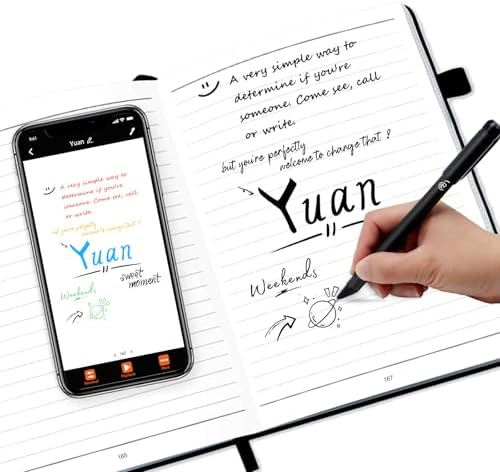 A very simple way to
determine if you're
someone. Come see, call
or write.
but you're perfectly
welcome to change that !
Yuan
Weekends
167
9:41
Yuan
A very simple way to
determine if you're
someone. Come see, call
or write.
but you're perfectly
welcome to change that !
Yuan
sweet
moment
Weekends
167
Rewind
Playback
More
165